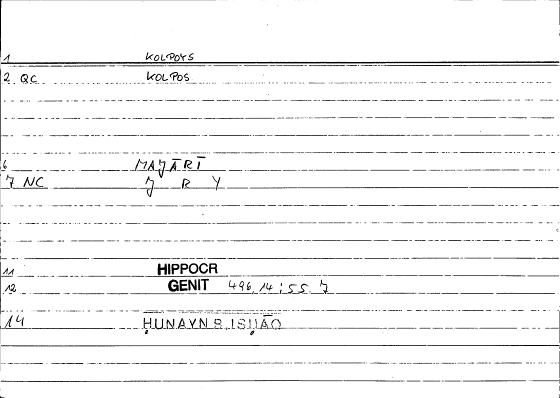 1 KOLPOYS
2 QC KOLPOS
6 MAJĀRĪ
7 NC J R Y
11 HIPPOCR
12 GENIT 496,14 : 55 7
14 ḤUNAYN B. ISḤĀQ